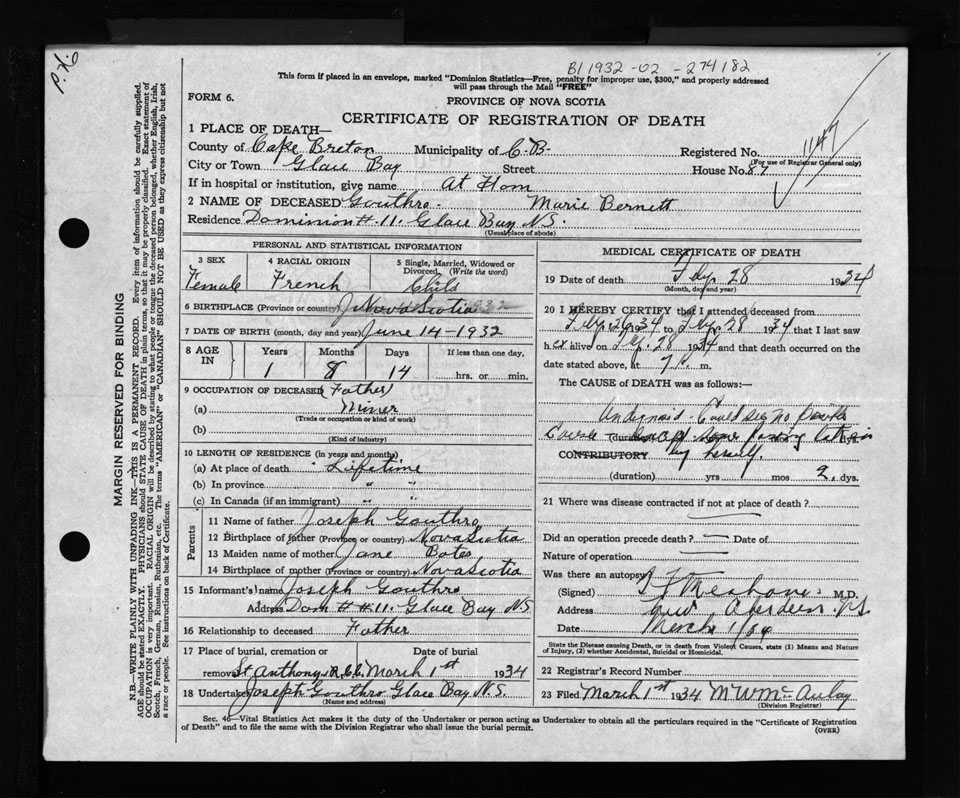 P.X.
B1 1932-02-274182
This form if placed in an envelope, marked "Dominion Statistics—Free, penalty for improper use, $300," and properly addressed
will pass through the Mail "FREE"
FORM 6.
PROVINCE OF NOVA SCOTIA
CERTIFICATE OF REGISTRATION OF DEATH
1147
1 PLACE OF DEATH—
County of Cape Breton Municipality of C-B- Registered No.
(For use of Registrar General only)
City or Town Glace Bay Street House No. 87
If in hospital or institution, give name At Hom
2 NAME OF DECEASED Gouthro. Marie Bernett
Residence Dominion #. 11. Glace Bay N.S.
(Usual place of abode)
PERSONAL AND STATISTICAL INFORMATION
3 SEX 4 RACIAL ORIGIN 5 Single, Married, Widowed or
Divorced, (Write the word)
Female French Child
6 BIRTHPLACE (Province or country) Nova Scotia 932
7 DATE OF BIRTH (month, day and year) June 14-1932
8 AGE IN Years Months Days If less than one day,
1 8 14 hrs. or min.
9 OCCUPATION OF DECEASED (Father)
(a) Miner
(Trade or occupation or kind of work)
(b)
(Kind of industry)
10 LENGTH OF RESIDENCE (in years and months)
(a) At place of death Lifetime
(b) In province " "
(c) In Canada (if an immigrant) " "
Parents
11 Name of father Joseph Gouthro
12 Birthplace of father (Province or country) Nova Scotia
13 Maiden name of mother Jane Bates
14 Birthplace of mother (Province or country) Nova Scotia
15 Informant's name Joseph Gouthro
Address Dom # #.11. Glace Bay N.S.
16 Relationship to deceased Father
17 Place of burial, cremation or Date of burial
removal St. Anthonys R.C.C. March 1st 1934
18 Undertaker Joseph Gouthro Glace Bay N.S.
(Name and address)
MEDICAL CERTIFICATE OF DEATH
19 Date of death 28 1934
(Month, day and year)
20 I HEREBY CERTIFY that I attended deceased from
26 1934 to 28 1934 that I last saw
her alive on 28 1934 and that death occurred on the
date stated above, at 7 m.
The CAUSE of DEATH was as follows:—
Undignosed. Could see no Possible
Cause (duration) some
CONTRIBUTORY by herself.
(duration) yrs mos 2. dys.
21 Where was disease contracted if not at place of death?
Did an operation precede death? — Date of
Nature of operation —
Was there an autopsy?
(Signed) M.D.
Address New Aberdeen N.S.
Date March 1/34
State the Disease causing Death, or in death from Violent Causes, state (1) Means and
Nature of Injury, (2) whether Accidental, Suicidal or Homicidal.
22 Registrar's Record Number
23 Filed March 1st 1934 M W McAulay
(Division Registrar)
Sec. 46—Vital Statistics Act makes it the duty of the Undertaker or person acting as Undertaker to obtain all the particulars required in the "Certificate of Registration
of Death" and to file the same with the Division Registrar who shall issue the burial permit. (OVER)
MARGIN RESERVED FOR BINDING
N.B.—WRITE PLAINLY WITH UNFADING INK—THIS IS A PERMANENT RECORD. Every item of information should be carefully supplied.
AGE should be stated EXACTLY. PHYSICIANS should STATE CAUSE OF DEATH in plain terms, so that it may be properly classified. Exact statement of
OCCUPATION is very important. RACIAL ORIGIN will be described by stating to what people or tongue the deceased person belonged, whether English, Irish,
Scotch, French, German, Russian, Ruthenian, etc. The terms "AMERICAN" or "CANADIAN" SHOULD NOT BE USED as they express citizenship but not
a race or people. See instructions on back of Certificate.